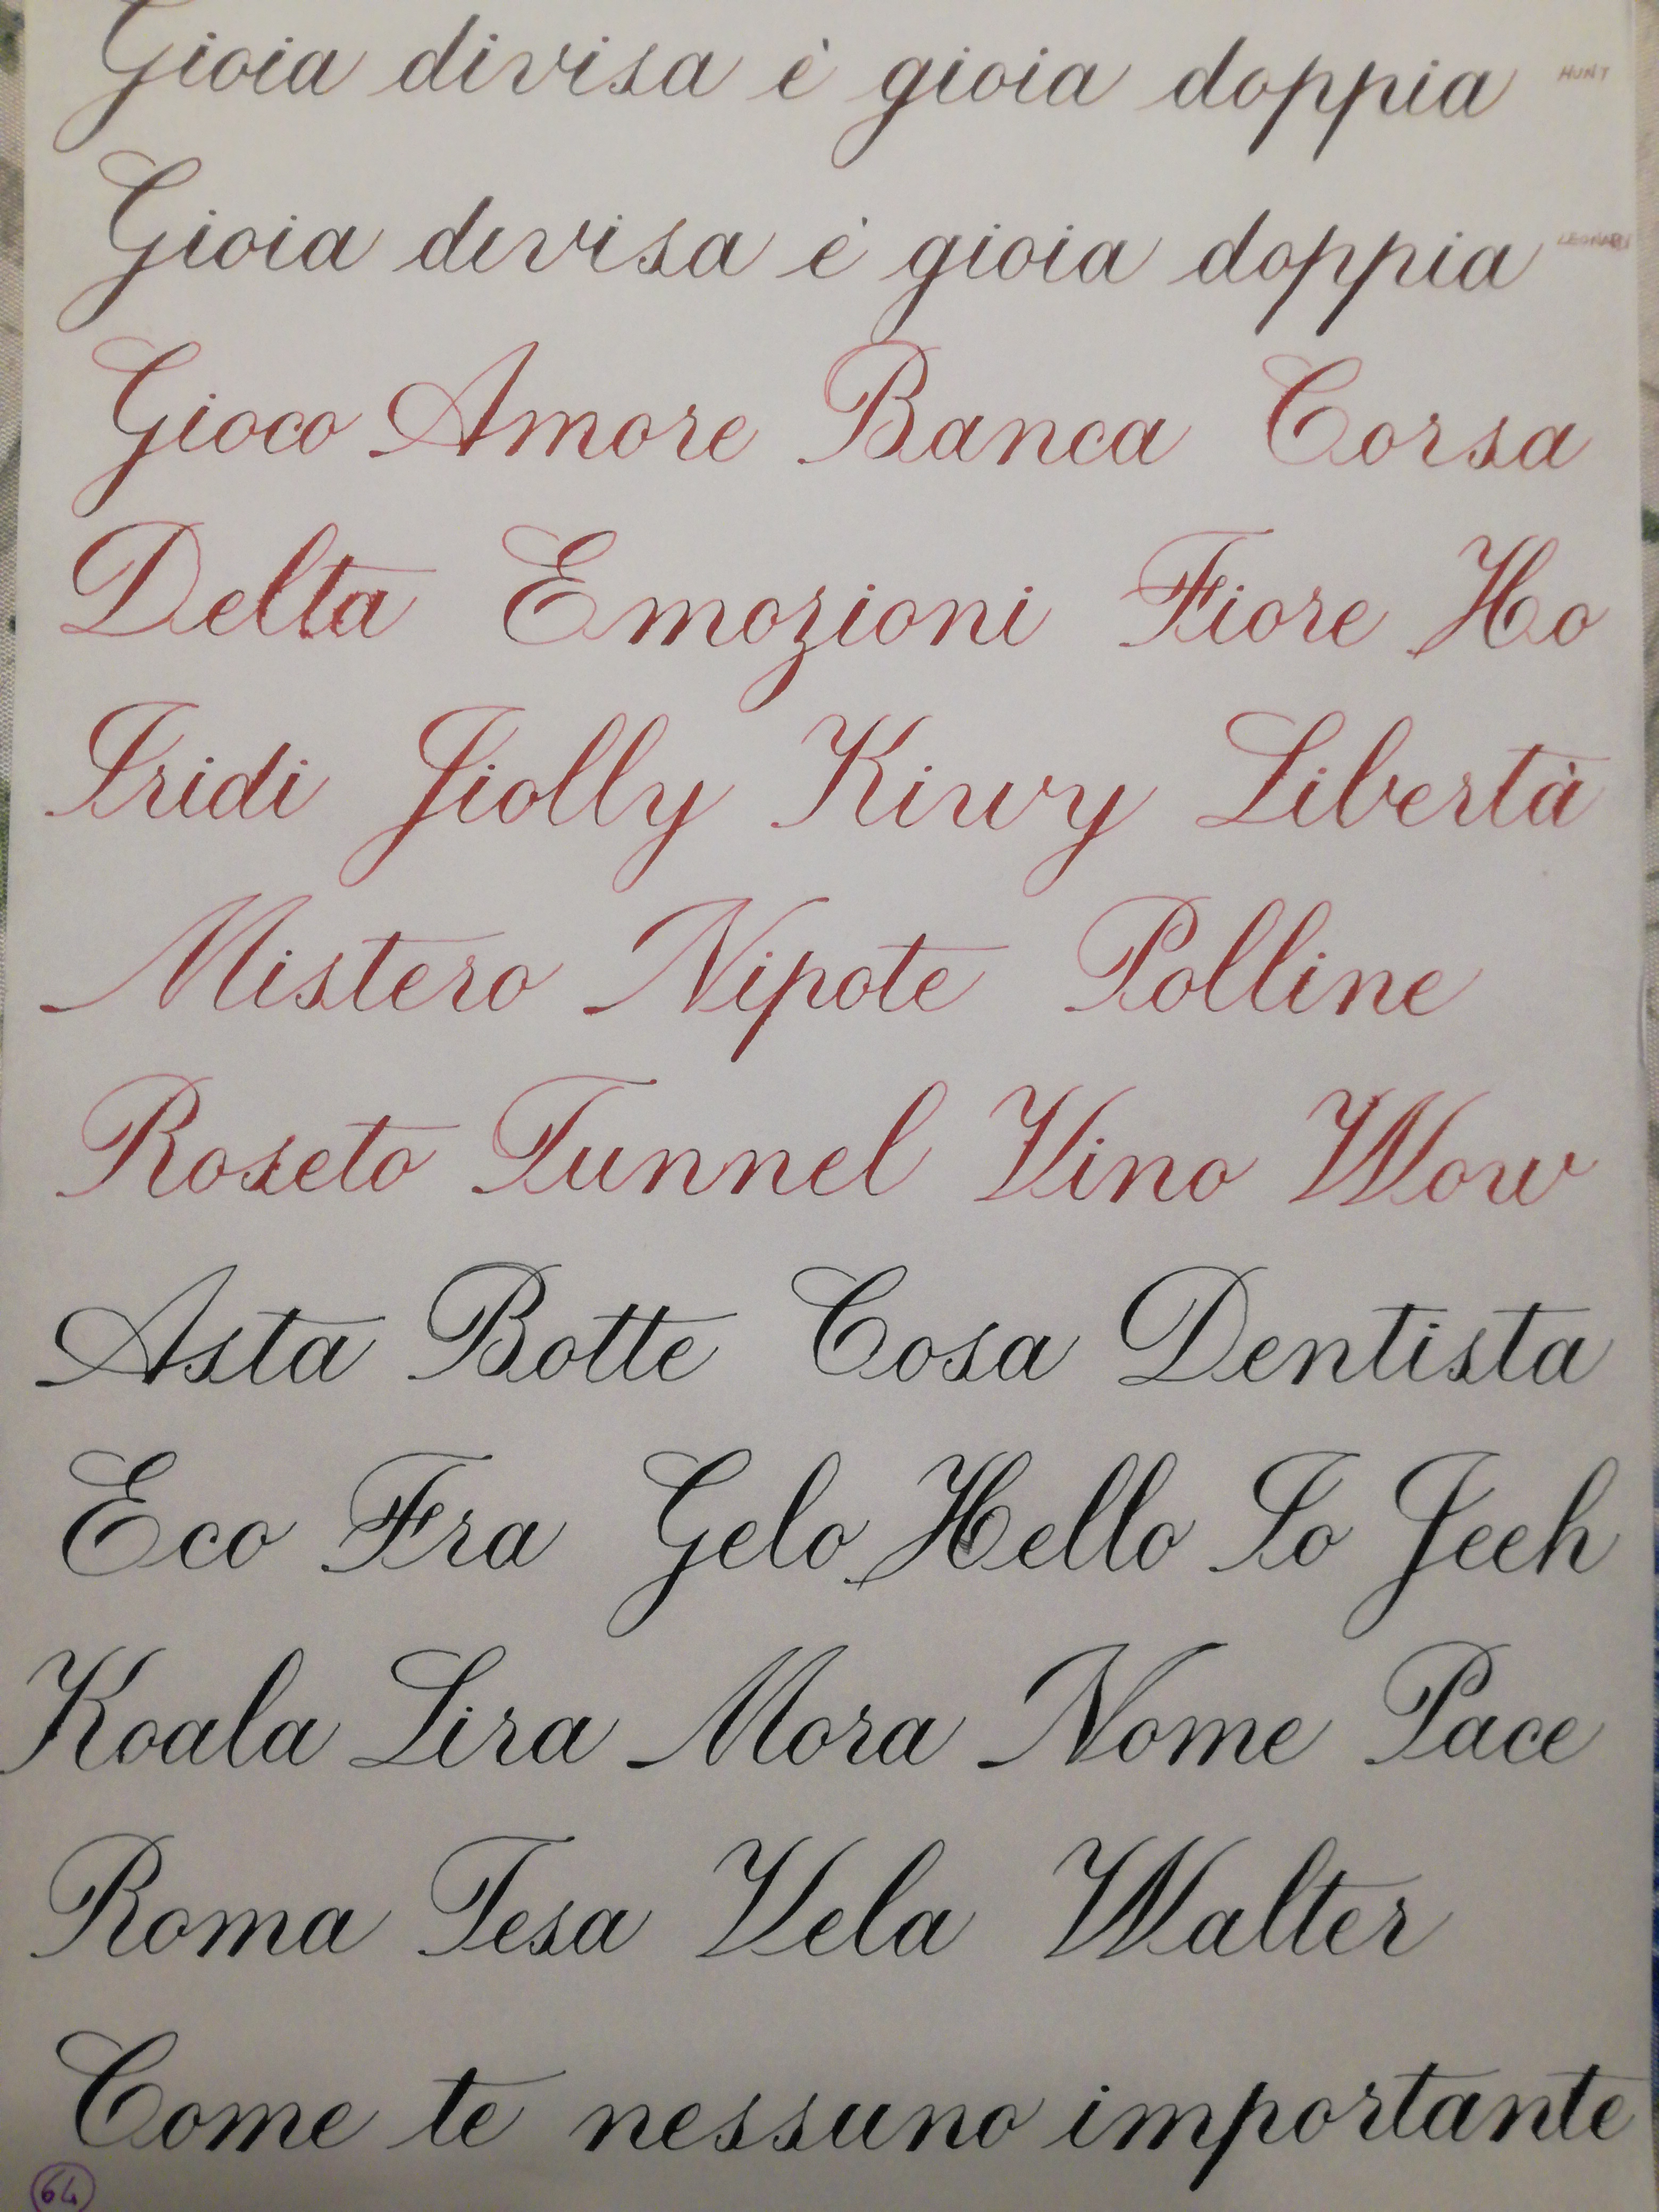 Gioia divisa è gioia doppia HUNT
Gioia divisa è gioia doppia LEONARDT
Gioco Amore Banca Corsa
Delta Emozioni Fiore Ho
Iridi Jiolly Kiwy Libertà
Mistero Nipote Polline
Roseto Tunnel Vino Wow
Asta Botte Cosa Dentista
Eco Fra Gelo Hello Io Jeeh
Koala Lira Mora Nome Pace
Roma Tesa Vela Walter
Come te nessuno importante
64